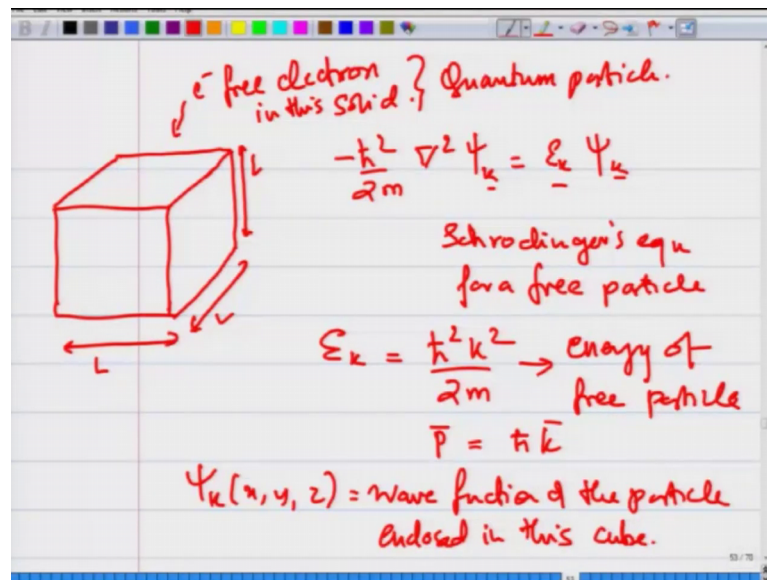 e⁻ free electron
in this solid. } Quantum particle.
-ħ²/2m ∇² Ψ_k = ε_k Ψ_k
L
Schrodinger's eqn
for a free particle
L
L
ε_k = ħ²k²/2m → energy of
free particle
p̄ = ħ k̄
Ψ_k(x, y, z) = wave function of the particle
enclosed in this cube.
53/70